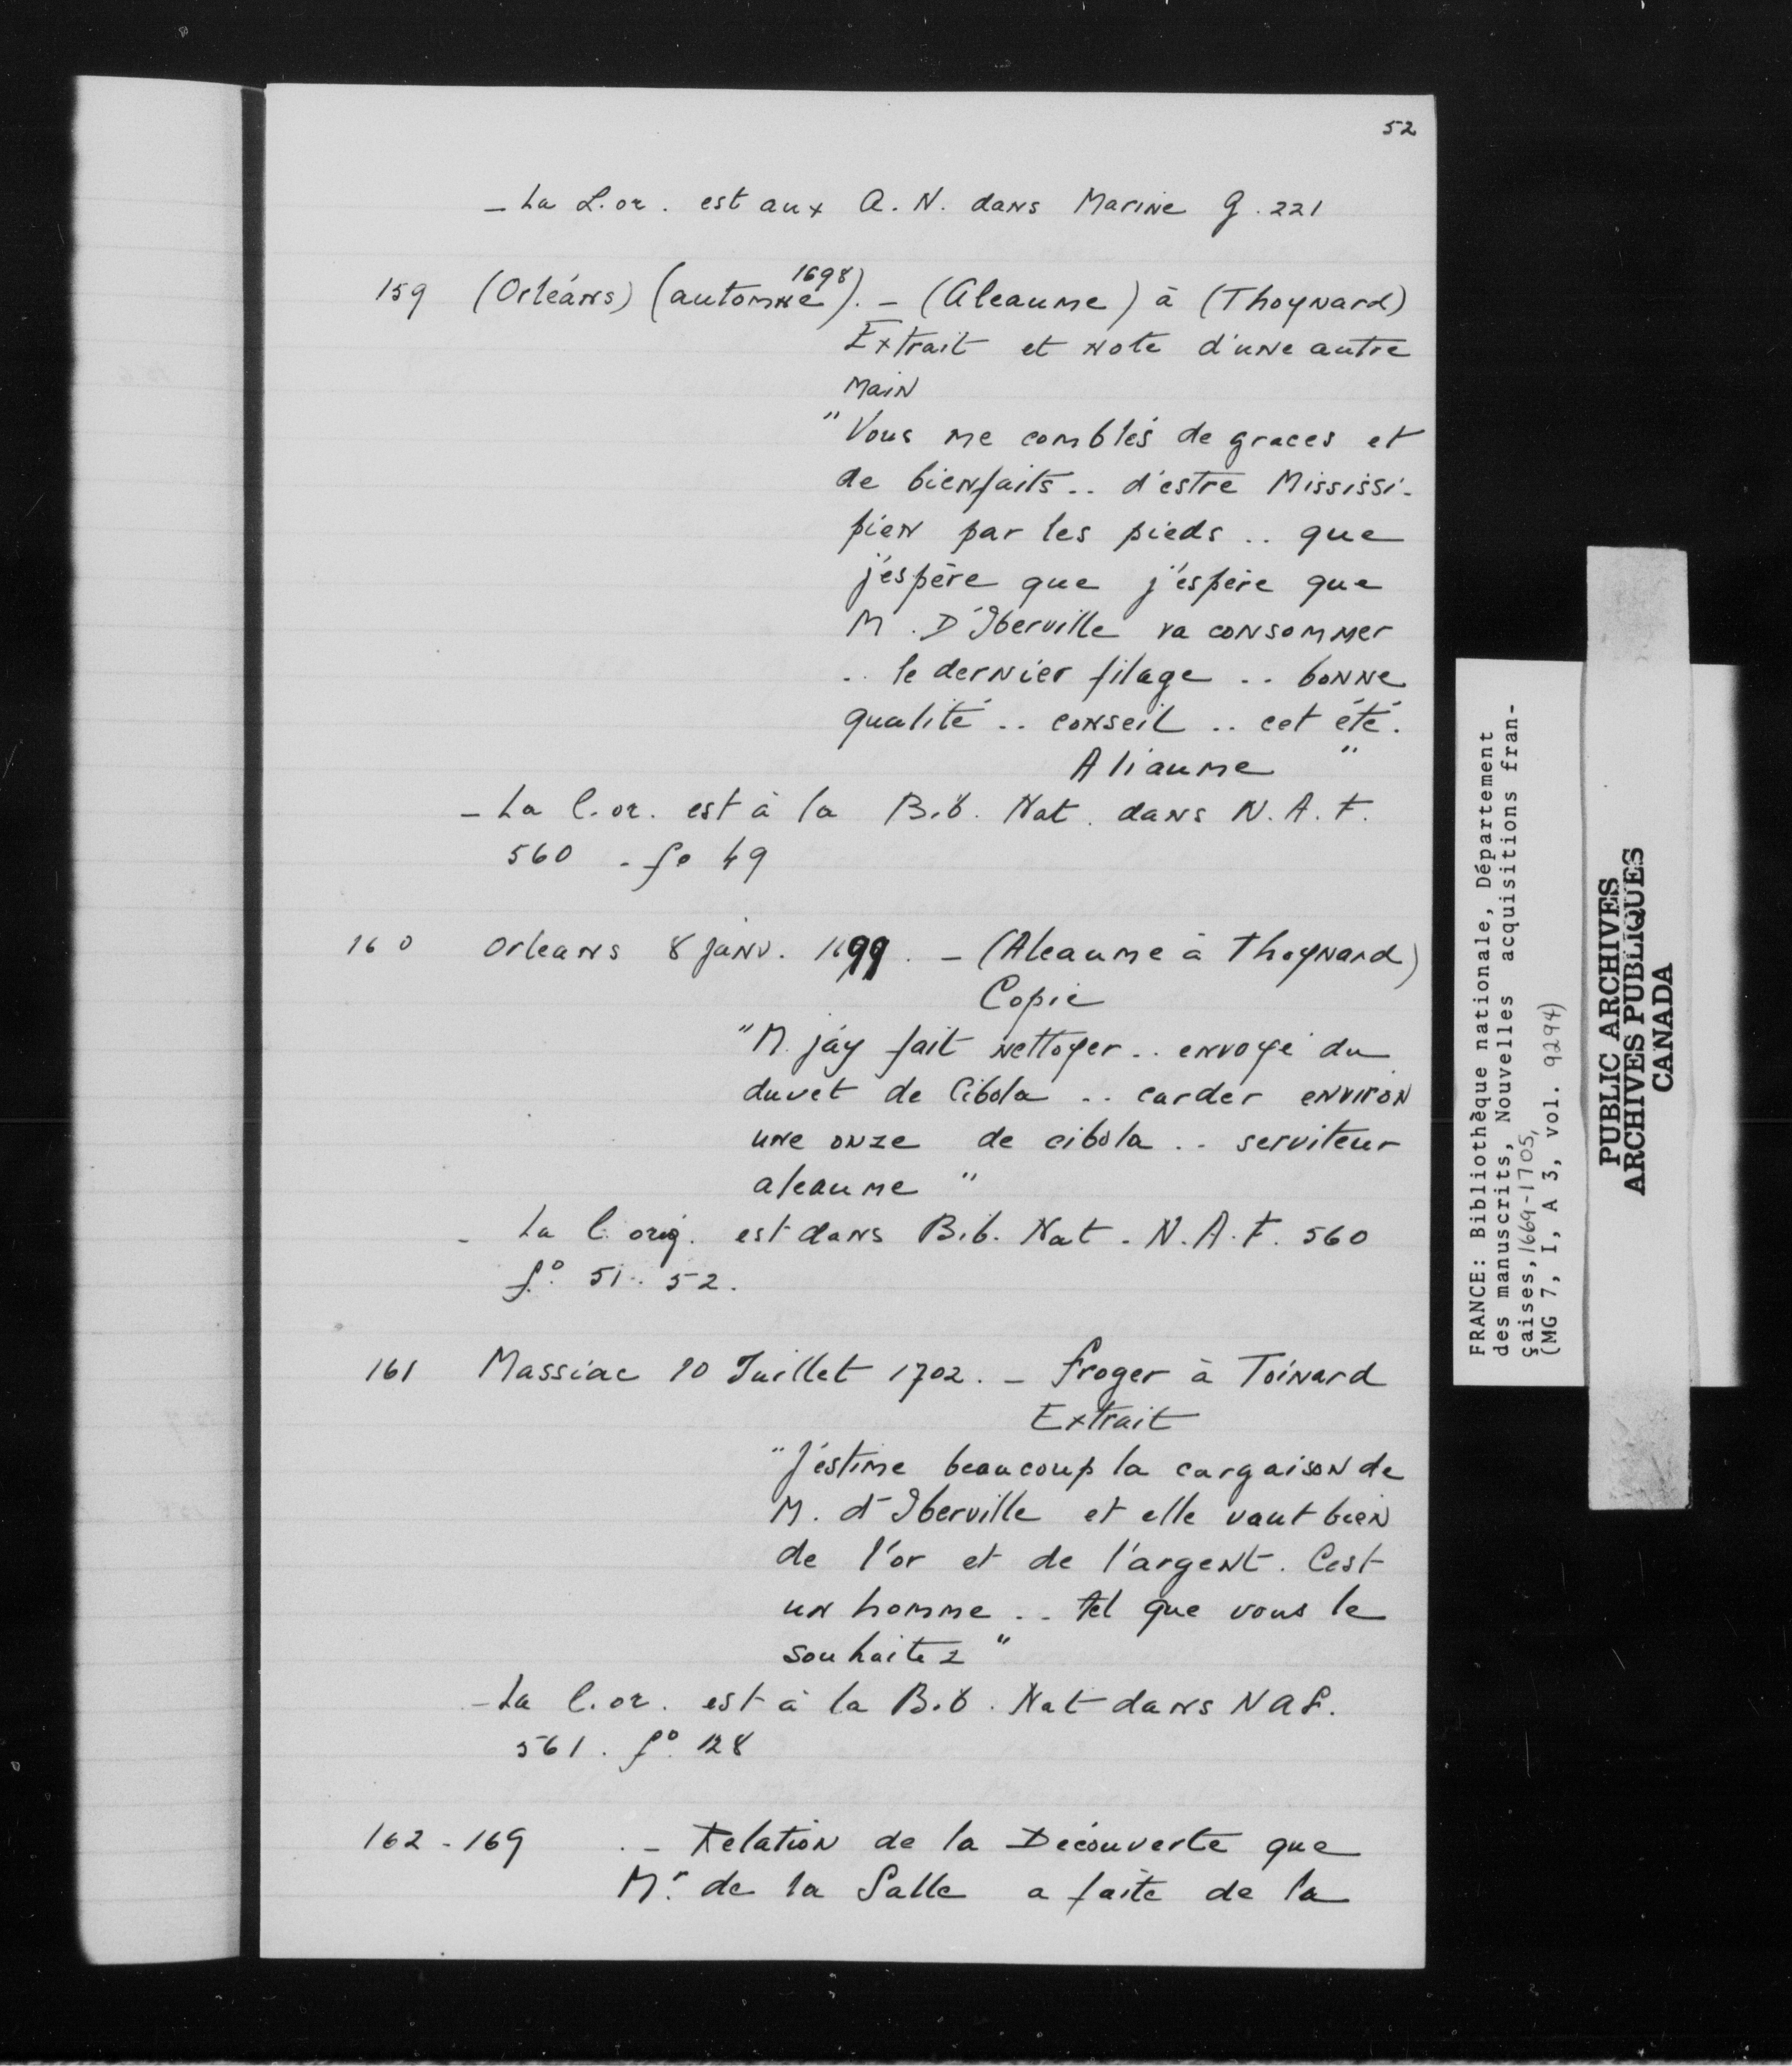 52
- La L. or. est aux A. N. dans Marine G. 221
159 (Orléans) (automne 1698). - (Aleaume) à (Thoynard)
Extrait et note d'une autre
main
"Vous me comblés de graces et
de bienfaits .. d'estre Mississi-
pien par les pieds .. que
j'espère que j'espère que
M. D'Iberville va consommer
.. le dernier filage .. bonne
qualité .. conseil .. cet été.
Aliaume "
- La l. or. est à la Bib. Nat. dans N. A. F.
560 - fo 49
160 Orleans 8 janv. 1699. - (Aleaume à Thoynard)
Copie
"M. j'ay fait nettoyer .. envoyé du
duvet de Cibola .. carder environ
une onze de cibola .. serviteur
aleaume "
- La l. orig. est dans Bib. Nat. N. A. F. 560
fº 51. 52.
161 Massiac 10 Juillet 1702. - Froger à Toinard
Extrait
"J'estime beaucoup la cargaison de
M. d'Iberville et elle vaut bien
de l'or et de l'argent. C'est
un homme .. tel que vous le
souhaitez "
- La l. or. est à la Bib. Nat dans NAF.
561. fº 128
162 - 169 . - Relation de la Découverte que
Mr. de la Salle a faite de la
FRANCE: Bibliothèque nationale, Département
des manuscrits, Nouvelles acquisitions fran-
çaises, 1669-1705,
(MG 7, I, A 3, vol. 9294)
PUBLIC ARCHIVES
ARCHIVES PUBLIQUES
CANADA